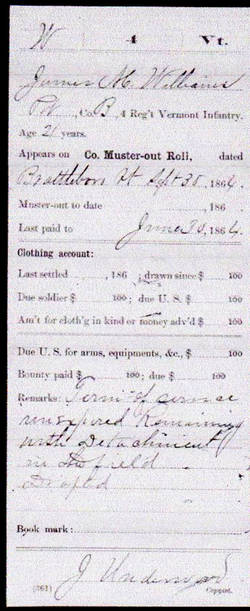 W 4 Vt.
James M. Williams
Pvt, Co. B, 4 Reg't Vermont Infantry.
Age 21 years.
Appears on Co. Muster-out Roll, dated
Brattleboro Vt Sept 30, 1864.
Muster-out to date , 186 .
Last paid to June 30, 1864.
Clothing account:
Last settled , 186 ; drawn since $ 100
Due soldier $ 100; due U. S. $ 100
Am't for cloth'g in kind or money adv'd $ 100
Due U. S. for arms, equipments, &c., $ 100
Bounty paid $ 100; due $ 100
Remarks: Term of service
unexpired Remaining
with Detachment
in the field
Drafted
Book mark:
J Underwood
(361) Copyist.